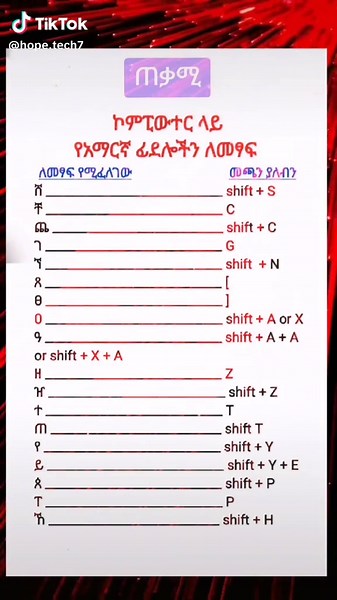 TikTok
@hope.tech7
ጠቃሚ
ኮምፒውተር ላይ
የአማርኛ ፊደሎችን ለመፃፍ
ለመፃፍ የሚፈለገው መጫን ያለብን
ሸ shift + S
ቸ C
ጨ shift + C
ገ G
ኘ shift + N
ጸ [
ፀ ]
0 shift + A or X
ዓ shift + A + A
or shift + X + A
ዘ Z
ዠ shift + Z
ተ T
ጠ shift T
የ shift + Y
ይ shift + Y + E
ጰ shift + P
ፐ P
ኸ shift + H